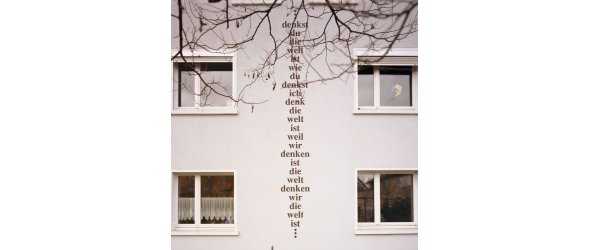 :
denkst
du
die
welt
ist
wie
du
denkst
ich
denk
die
welt
ist
weil
wir
denken
ist
die
welt
denken
wir
die
welt
ist
: